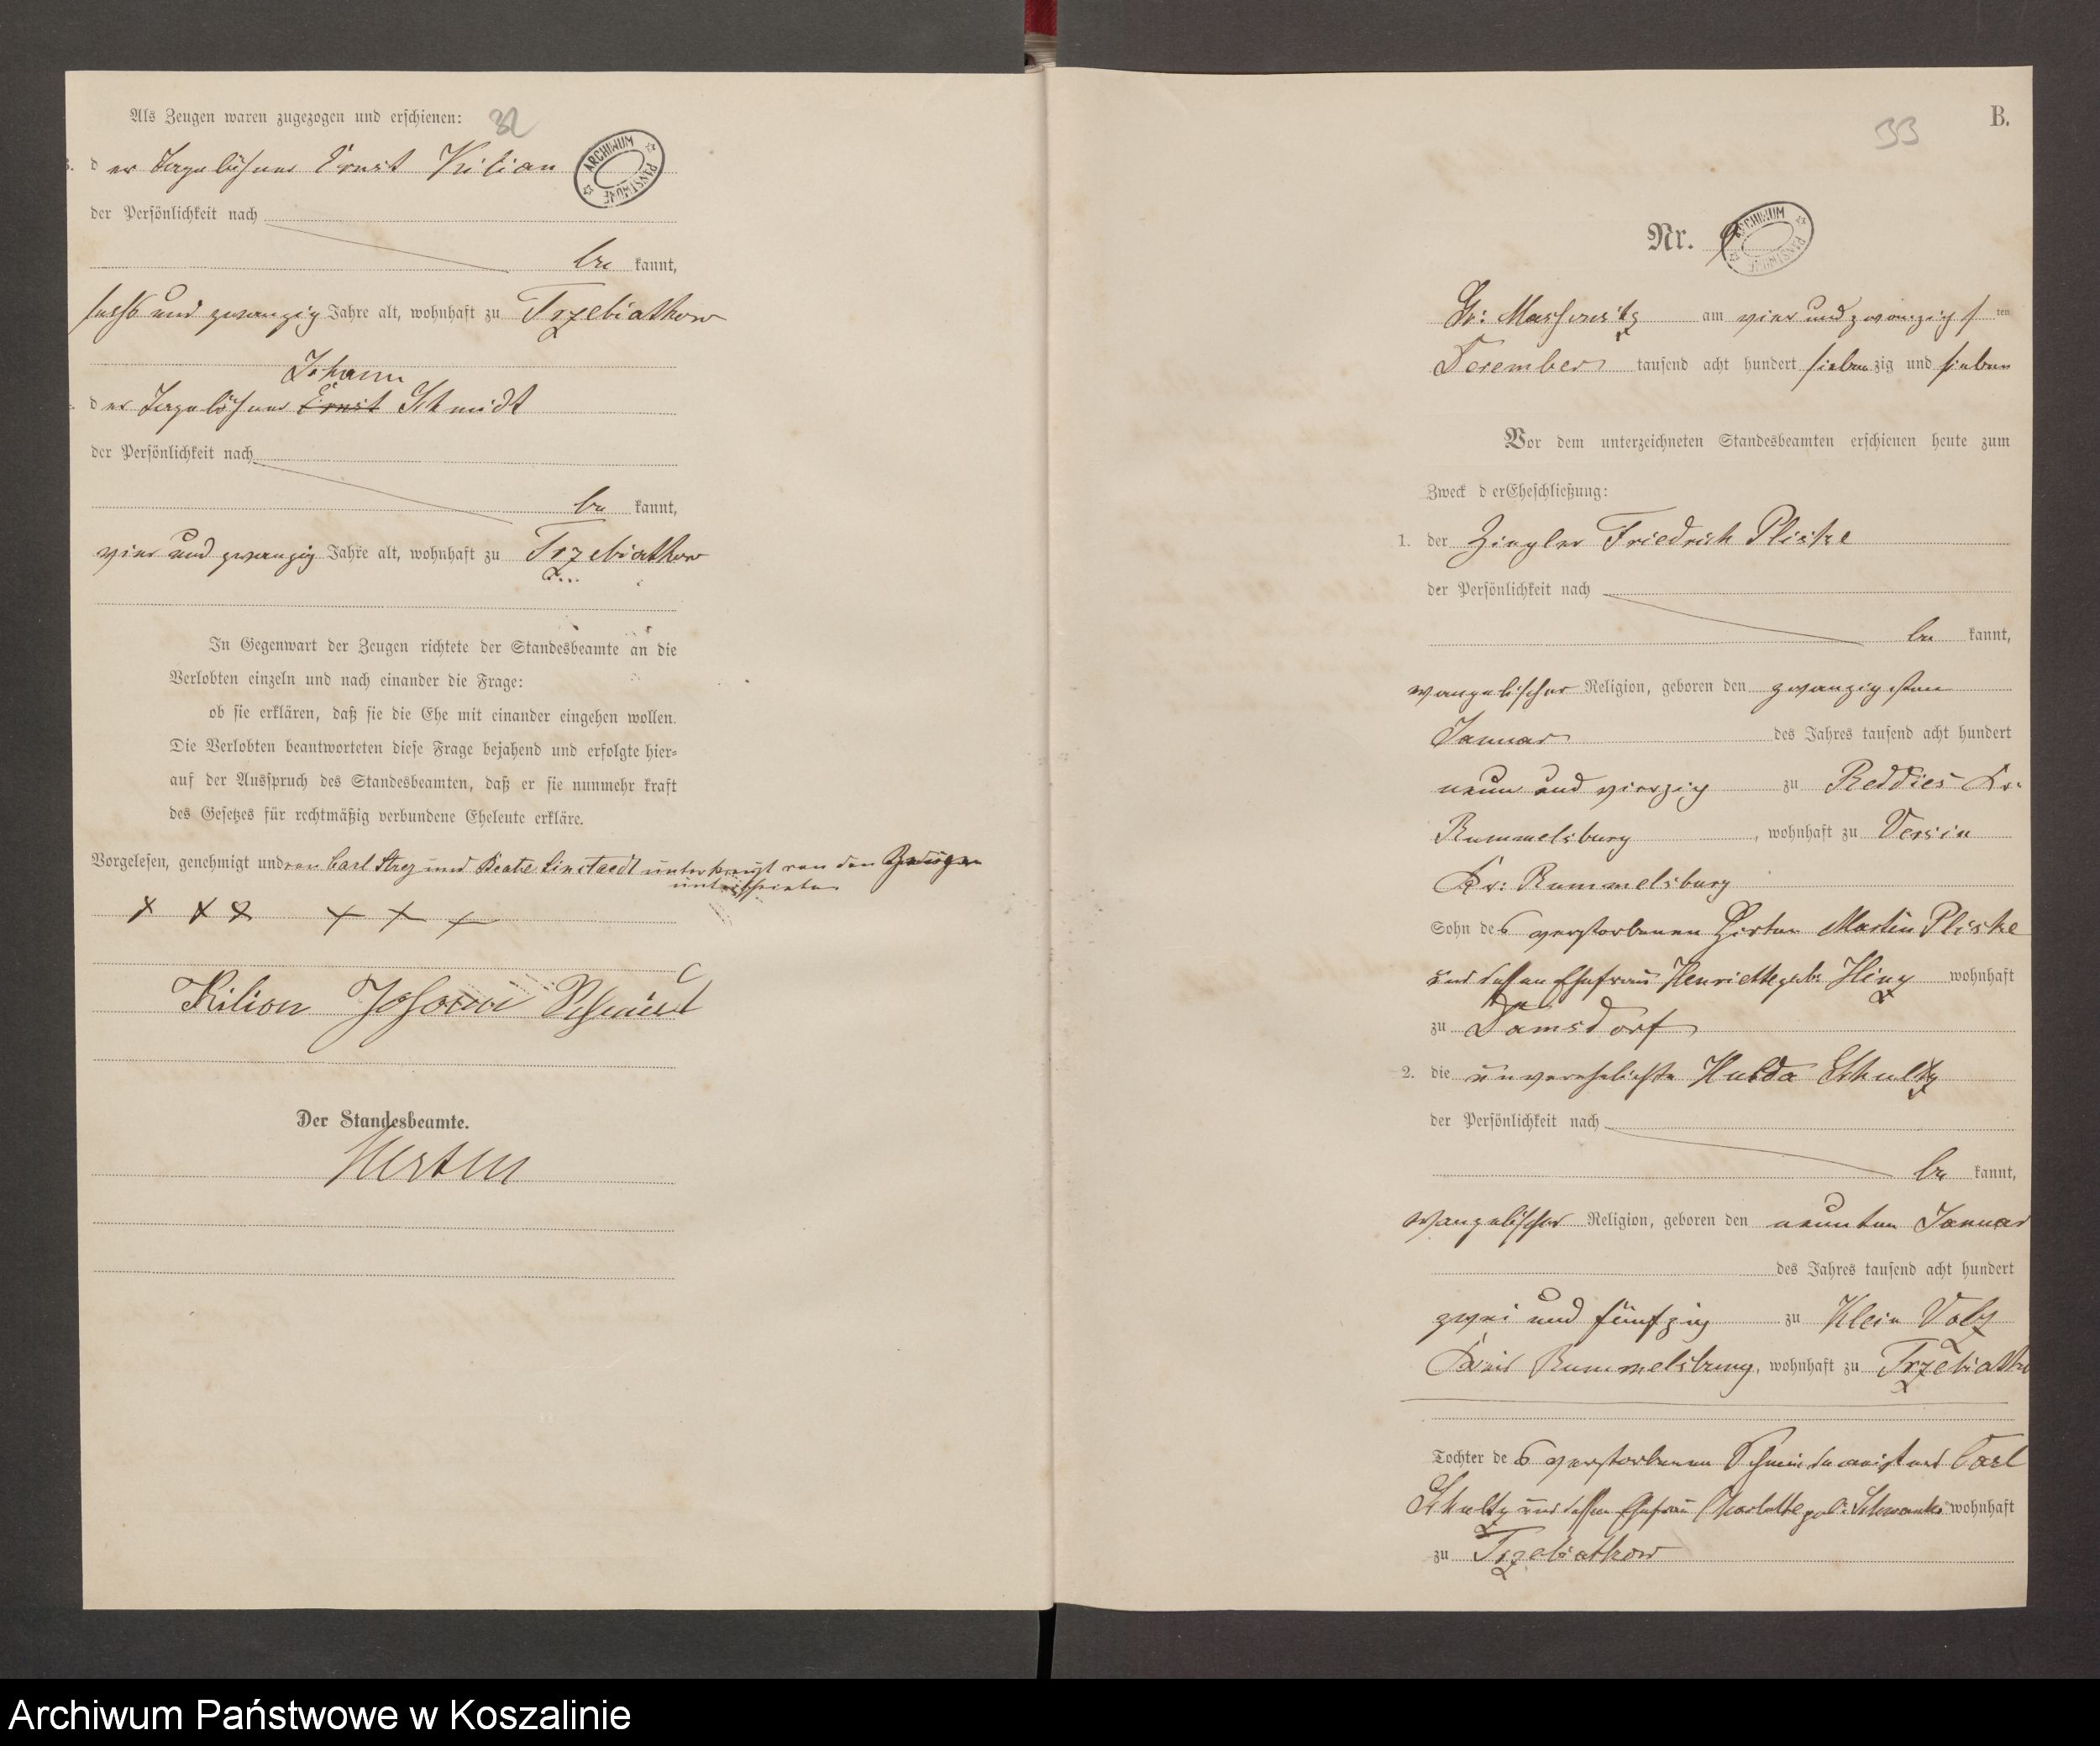 Als Zeugen waren zugezogen und erschienen:
32
der Tagelöhner Ernst Kilian
ARCHIWUM PAŃSTWOWE
der Persönlichkeit nach
be kannt,
sechs und zwanzig Jahre alt, wohnhaft zu Trzebiatkow
Johann
der Tagelöhner Ernst Schmidt
der Persönlichkeit nach
be kannt,
vier und zwanzig Jahre alt, wohnhaft zu Trzebiatkow
In Gegenwart der Zeugen richtete der Standesbeamte an die
Verlobten einzeln und nach einander die Frage:
ob sie erklären, daß sie die Ehe mit einander eingehen wollen.
Die Verlobten beantworteten diese Frage bejahend und erfolgte hier-
auf der Ausspruch des Standesbeamten, daß er sie nunmehr kraft
des Gesetzes für rechtmäßig verbundene Eheleute erkläre.
Vorgelesen, genehmigt und von Carl Strez und Beate Linstaedt unterkreuzt von den Zeugen
unterschrieben
x x x x x x
Kilion Johann Schmidt
Der Standesbeamte.
33
B.
Nr. 9
ARCHIWUM PAŃSTWOWE
Gr: Massowitz am vier und zwanzigsten
December tausend acht hundert siebenzig und sieben
Vor dem unterzeichneten Standesbeamten erschienen heute zum
Zweck der Eheschließung:
1. der Ziegler Friedrich Pliske
der Persönlichkeit nach
be kannt,
evangelischer Religion, geboren den zwanzigsten
Januar des Jahres tausend acht hundert
neun und vierzig zu Reddies Kr:
Rummelsburg, wohnhaft zu Versin
Kr: Rummelsburg
Sohn des verstorbenen Hirten Martin Pliske
und dessen Ehefrau Henriette geb: wohnhaft
zu Damsdorf
2. die unverehelichte Hulda Schultz
der Persönlichkeit nach
be kannt,
evangelischer Religion, geboren den neunten Januar
des Jahres tausend acht hundert
zwei und fünfzig zu Klein Volz
Kreis Rummelsburg, wohnhaft zu Trzebiatko
Tochter des verstorbenen Carl
Schultz und dessen Ehefrau Charlotte geb: Schwanke wohnhaft
zu Trzebiatkow
Archiwum Państwowe w Koszalinie